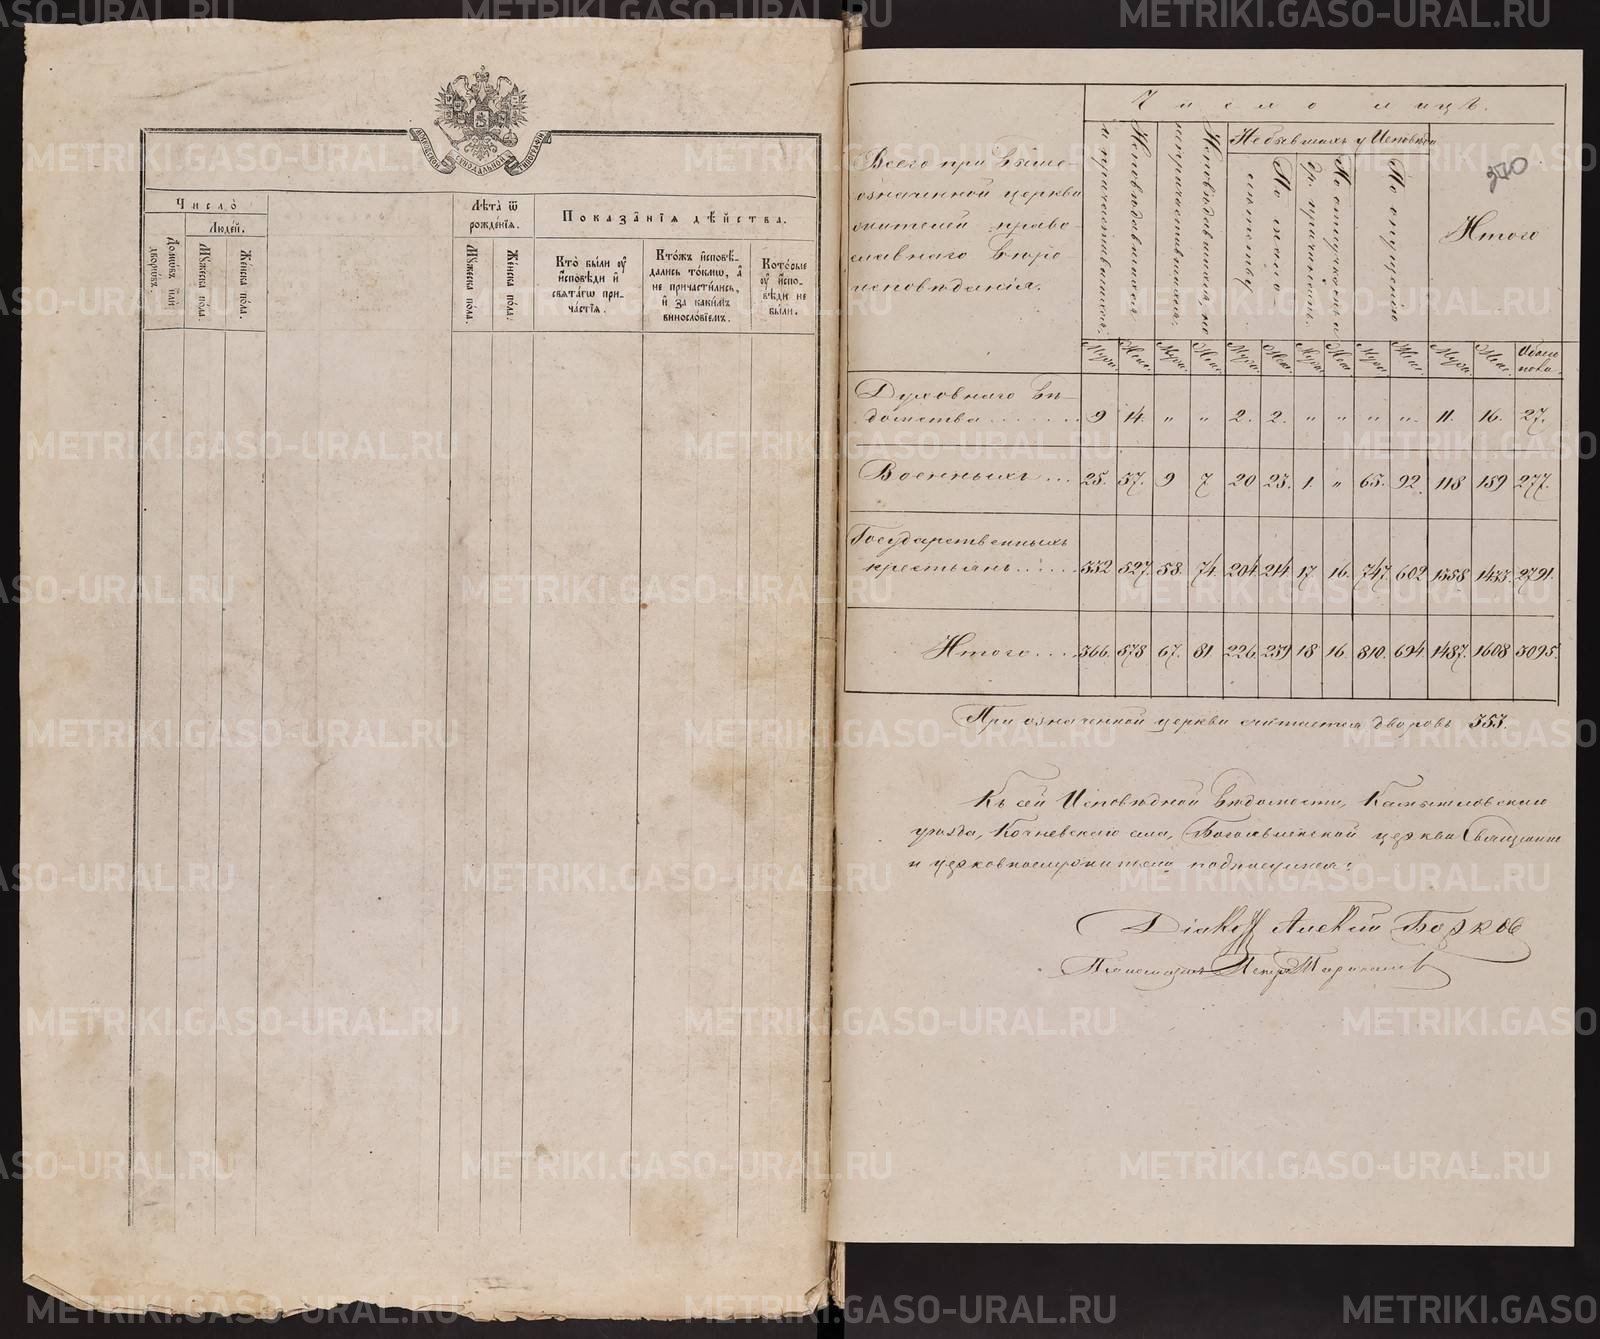 МОСКОВСКОЙ СѴНОДАЛЬНОЙ ТИПОГРАФІИ
Число̀
Людей.
Домѡвъ или дворѡвъ.
Мꙋжеска пола.
Женска пола.
Лѣта ѿ рожденїѧ.
Мꙋжеска пола.
Женска пола.
Показанїѧ дѣйства.
Кто были оу исповѣди и свѧтагѡ причастїѧ.
Ктожъ исповѣдались токмѡ, а не причастились, и за какимъ винословїемъ.
Которые оу исповѣди не были.
370
Число лицъ.
Всего при выше-
означенной церкви
жителей право-
славнаго вѣро-
исповѣданія.
Исповѣдавшихся и причастившихся.
Исповѣдавшихся, но непричастившихся.
Не бывшихъ у Исповѣди
По отлучкѣ и
По опущенію
Итого
Муж. Жен. Муж. Жен. Муж. Жен. Муж. Жен. Муж. Жен. Муж. Жен. Обоего пола.
Духовнаго вѣ-
домства . . . . . . . 9 14. „ „ 2. 2. „ „ „ „ 11. 16. 27.
Военныхъ . . . 25. 37. 9 7 20 23. 1. „ 63. 92. 118 159 277.
Государственныхъ
крестьянъ . . . . . 332 527. 58. 74. 204. 214. 17. 16. 747. 602 1358. 1433. 2791.
Итого . . . . 366. 578 67. 81. 226. 239 18 16. 810. 694. 1487. 1608 3095.
При означенной церкви считается дворовъ 353.
Къ сей Исповѣдной вѣдомости, Камышловскаго
уѣзда, Кочневскаго села, Богоявленской церкви Священно
и церковнослужители подписуемся:
Діаконъ Алексѣй Борков
Псаломщикъ Петръ
METRIKI.GASO-URAL.RU